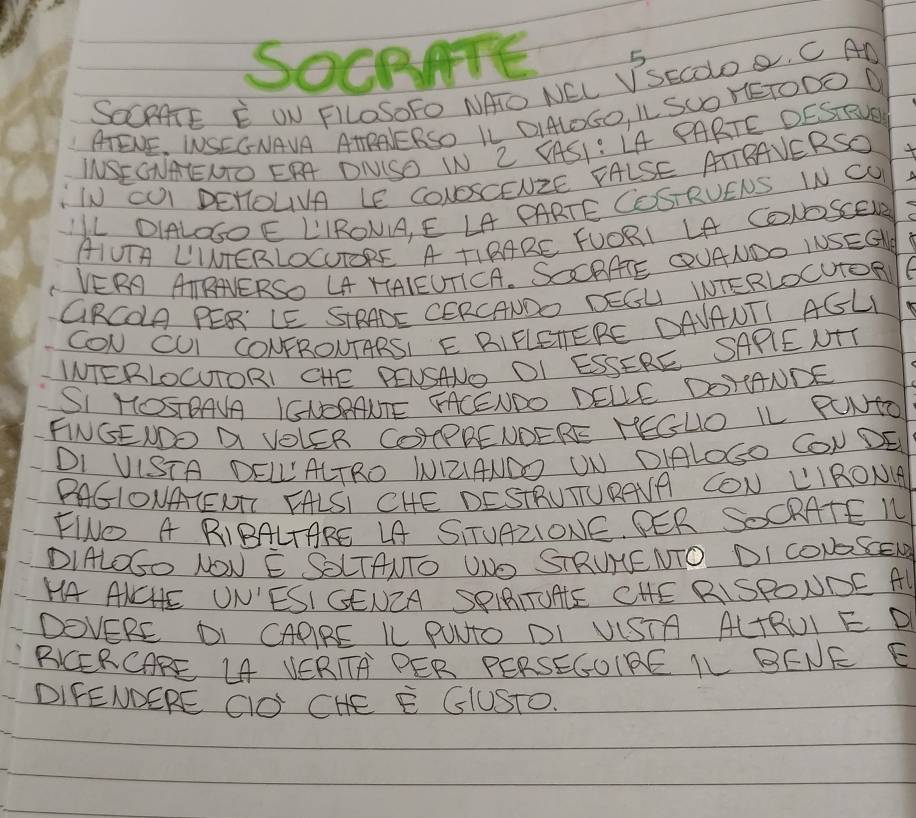 SOCRATE
SOCRATE È UN FILOSOFO NATO NEL V 5 SECOLO a.C AD
ATENE. INSEGNAVA ATTRAVERSO IL DIALOGO, IL SUO METODO DI
INSEGNAMENTO ERA DIVISO IN 2 FASI: LA PARTE DESTRUENS
IN CUI DEMOLIVA LE CONOSCENZE FALSE ATTRAVERSO
IL DIALOGO E L'IRONIA, E LA PARTE COSTRUENS IN CUI
AIUTA L'INTERLOCUTORE A TIRARE FUORI LA CONOSCENZA
VERA ATTRAVERSO LA MAIEUTICA. SOCRATE QUANDO INSEGNA
CIRCOLA PER LE STRADE CERCANDO DEGLI INTERLOCUTORI
CON CUI CONFRONTARSI E RIFLETTERE DAVANTI AGLI
INTERLOCUTORI CHE PENSANO DI ESSERE SAPIENTI
SI MOSTRAVA IGNORANTE FACENDO DELLE DOMANDE
FINGENDO DI VOLER COMPRENDERE MEGLIO IL PUNTO
DI VISTA DELL'ALTRO INIZIANDO UN DIALOGO CON DEI
RAGIONAMENTI FALSI CHE DESTRUTTURAVA CON L'IRONIA
FINO A RIBALTARE LA SITUAZIONE. PER SOCRATE IL
DIALOGO NON È SOLTANTO UNO STRUMENTO DI CONOSCENZA
MA ANCHE UN'ESIGENZA SPIRITUALE CHE RISPONDE AL
DOVERE DI CAPIRE IL PUNTO DI VISTA ALTRUI E DI
RICERCARE LA VERITÀ PER PERSEGUIRE IL BENE E
DIFENDERE CIÒ CHE È GIUSTO.